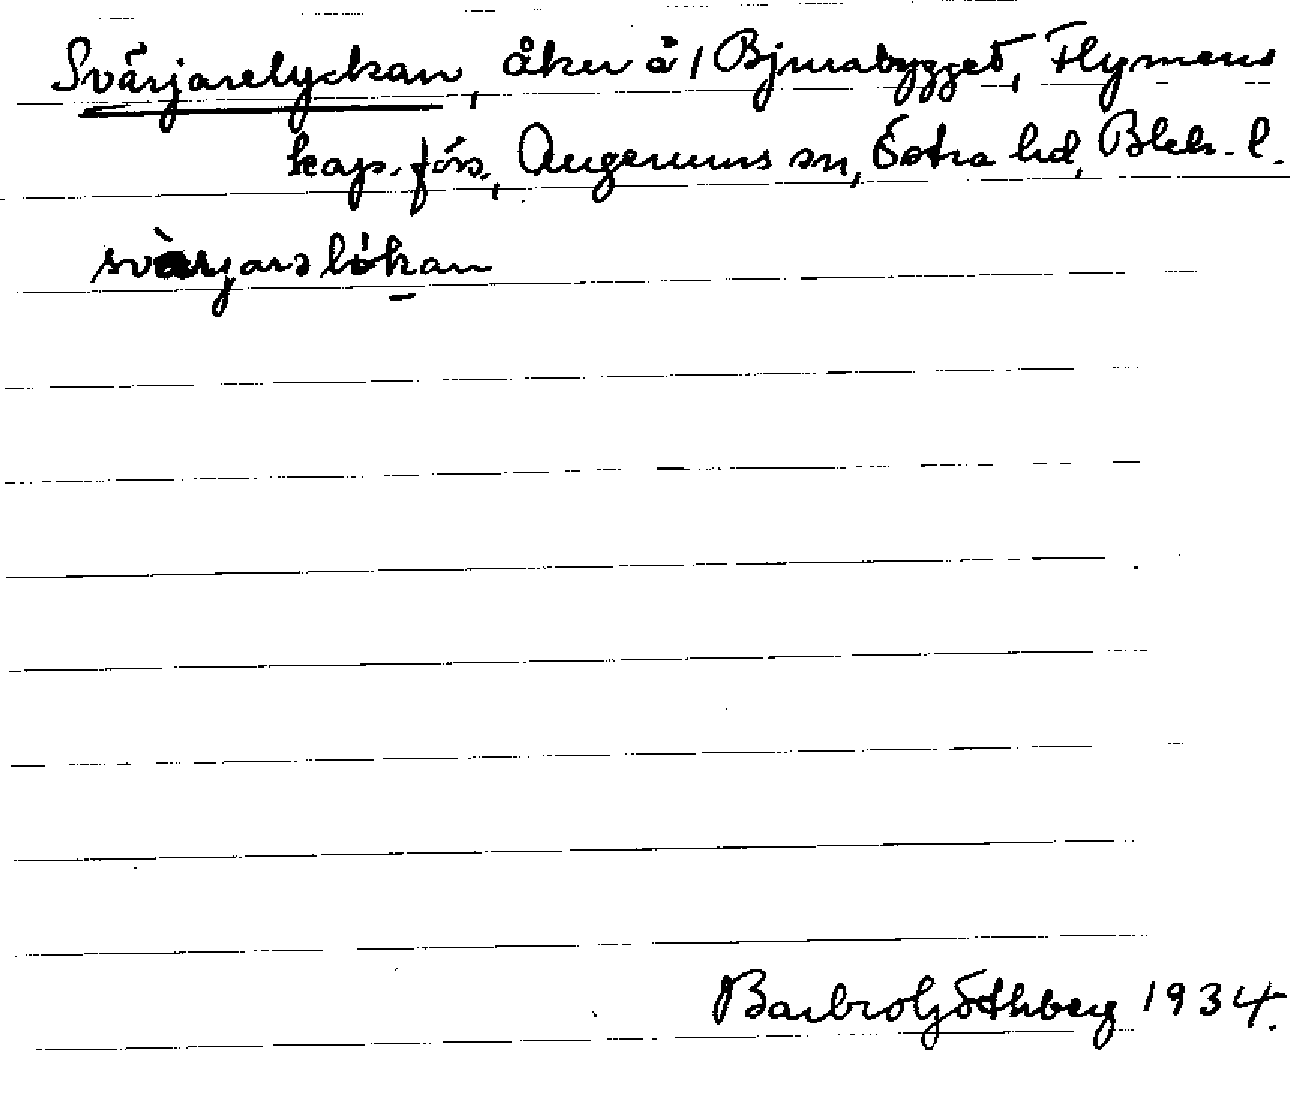 Svärjarelyckan, åker å 1 Bjurabygget, Flymens
kap. förs., Augerums sn, Östra hd, Blek. l.
svàrjarslókan
Barbro Göthberg 1934.